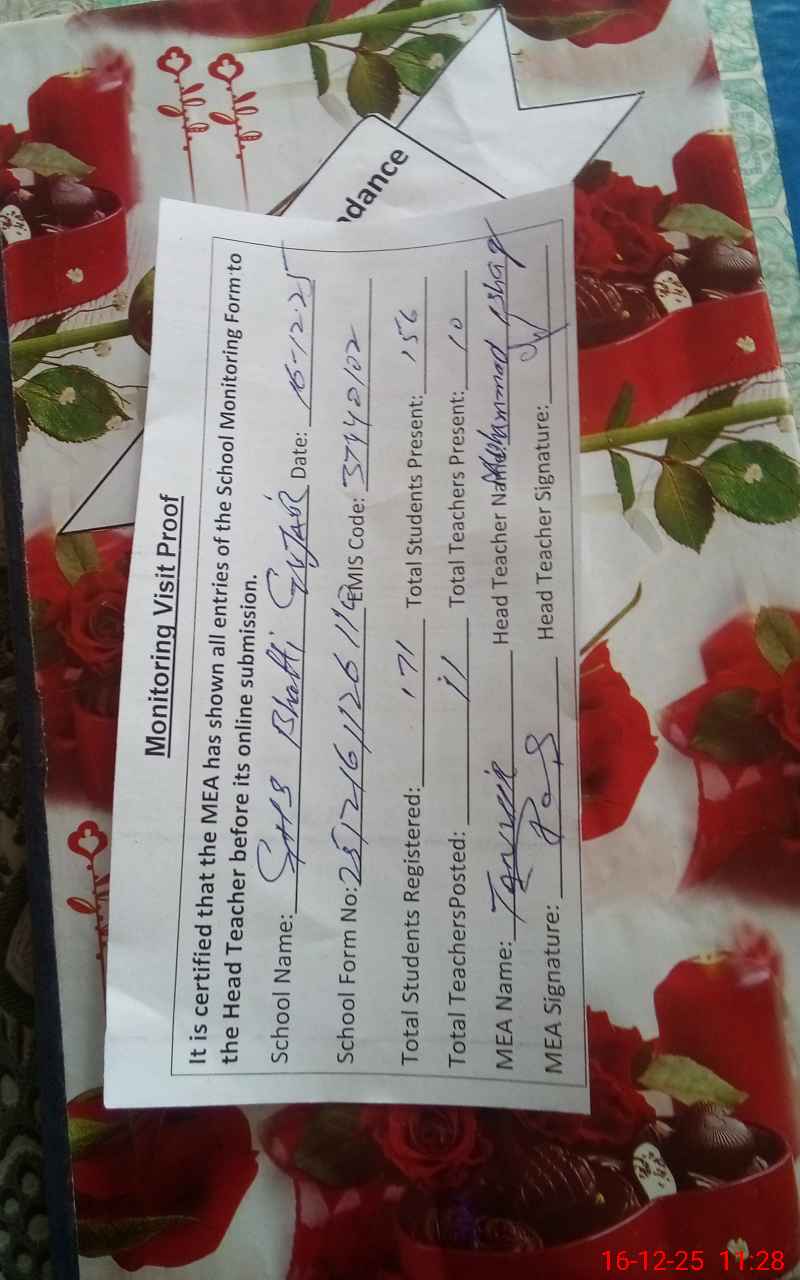 ndance
Monitoring Visit Proof
It is certified that the MEA has shown all entries of the School Monitoring Form to
the Head Teacher before its online submission.
School Name: GHS Bhatti GUJAR Date: 16-12-25
School Form No: EMIS Code: 37140102
Total Students Registered: 171 Total Students Present: 156
Total TeachersPosted: 11 Total Teachers Present: 10
MEA Name: Head Teacher Name: Muhammad Ishaq
MEA Signature: Head Teacher Signature:
16-12-25 11:28